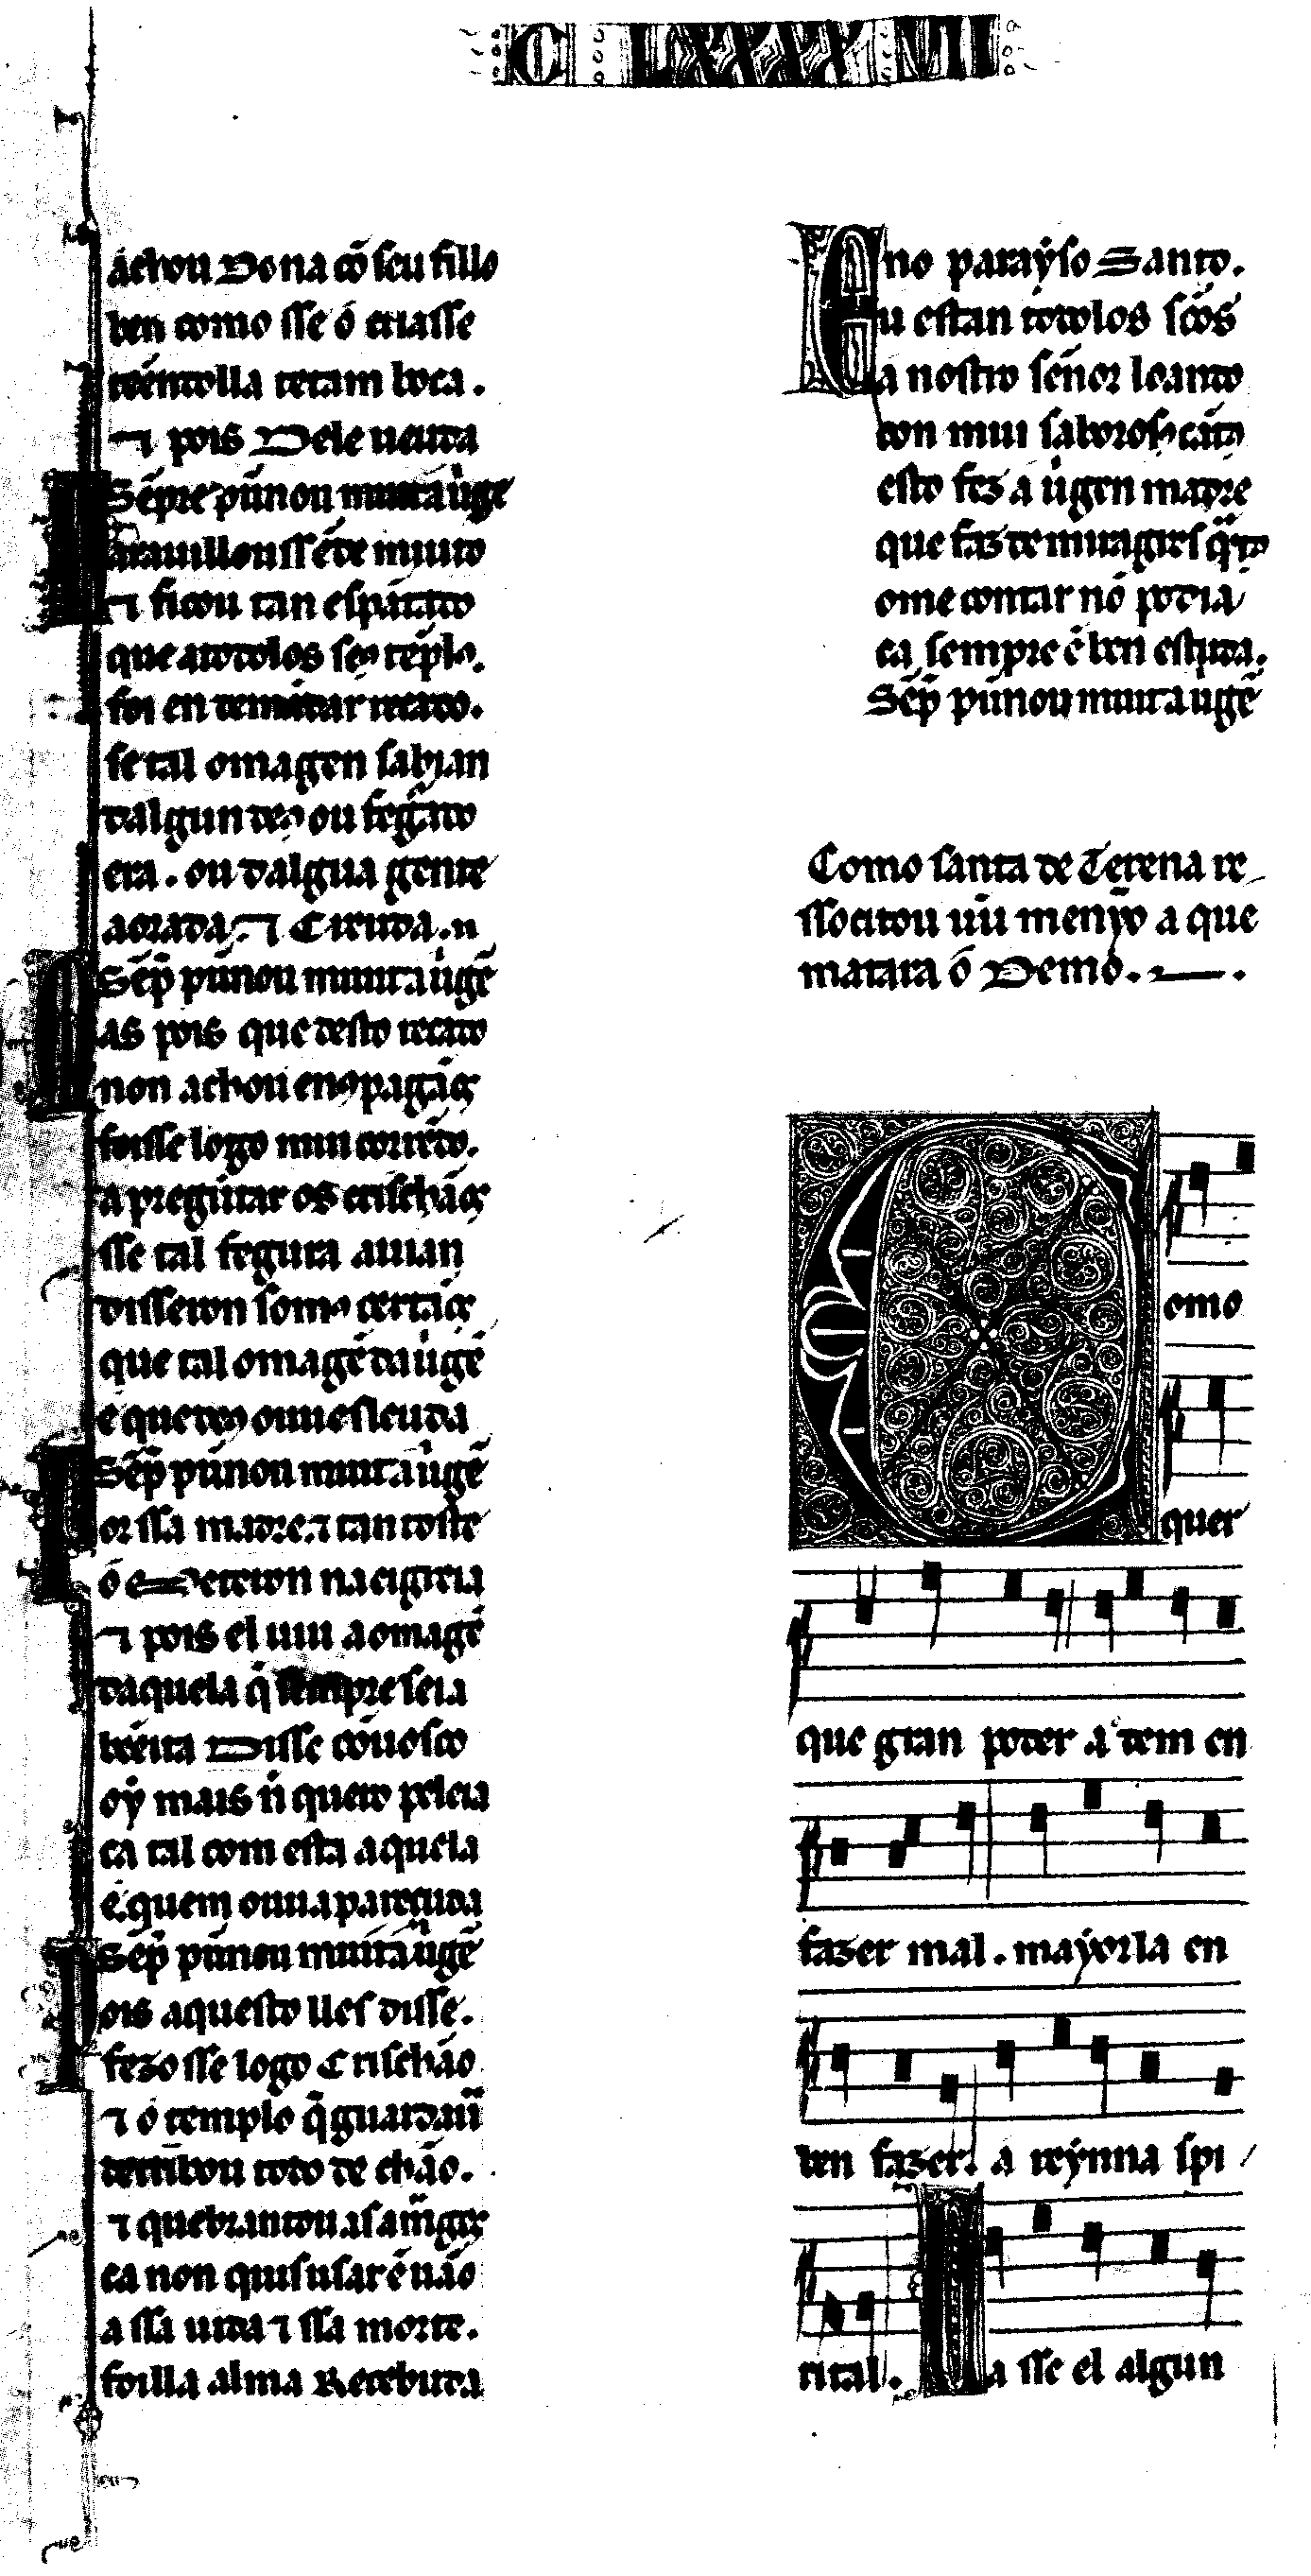 C LXXXX VII
achou Dona cõ seu fillo
ben como sse ó criasse
teẽndolla ceram boca.
⁊ pois Dele ueuda
Sẽpre pũnou muita uirgẽ
arauillousse ẽde muito
⁊ ficou tan espãtado
que atodolos seꝯ tẽplꝯ.
foi en demãdar recado.
se tal omagen sabian
dalgun deꝯ ou fegurado
era. ou dalgua gente
aorada. ⁊ Creuda.
Sẽp̃ pũnou muita uigẽ
as pois que desto recado
non achou enꝯ pagãos
foisse logo mui corrẽdo.
a pregũtar os crischãos
sse tal fegura auian
disseron somꝯ certãos
que tal omagẽ da uigẽ
é que deꝯ ouue sleuda
Sẽp̃ pũnou muita uigẽ
or ssa madre. ⁊ tan toste
ó Meteron na eigreia
⁊ pois el uiu a omagẽ
daquela q̃ sempre seia
bẽeita Disse cõuosco
oý mais ñ quero peleia
ca tal com esta aquela
é. quem ouua pareçuda
Sẽp̃ pũnou muita uigẽ
ois aquesto lles disse.
fezo sse logo Crischão
⁊ o templo q̃ guardaua
derribou todo de chão.
⁊ quebrantou as amagẽs
ca non quis usar ẽ uão
a ssa uida ⁊ ssa morte.
foilla alma Reçebuda
E no parayso Santo.
u estan todolos scõs
a nostro señor loando
con mui saborosꝯ cãtꝯ
esto fez a uigen madre
que faz de miragres q̃to
ome contar nõ podia
ca sempre é ben estuda.
Sẽp̃ pũnou muita ugẽ
Como santa de Terena re
ssocitou uũ menỹo a que
matara ó Demo.
Como
quer
que gran poder á dem en
fazer mal. mayor la en
ben fazer. a reỹnna spi
rital. Ca sse el algun